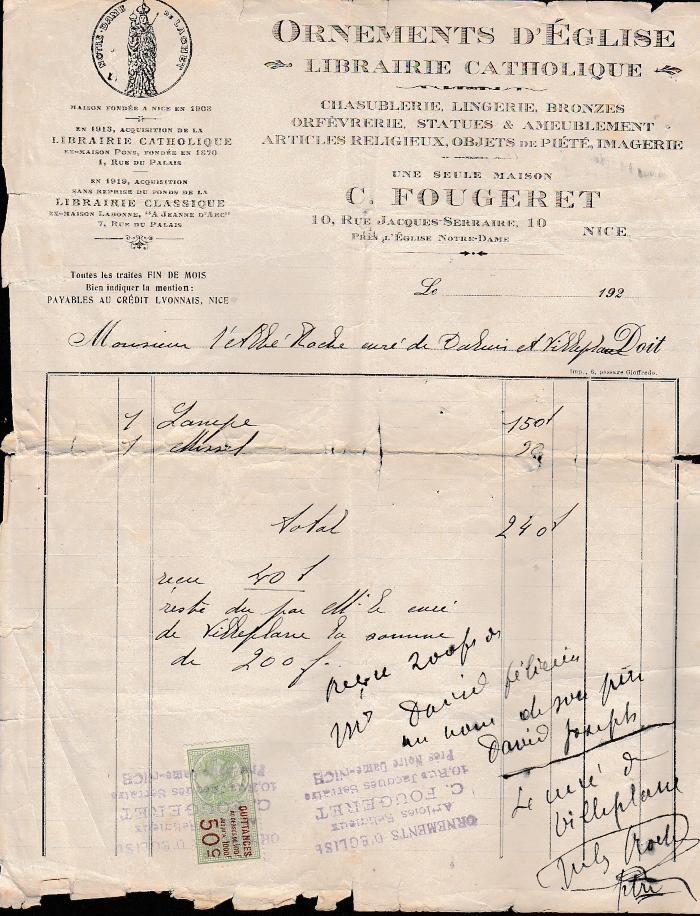 NOTRE-DAME DE LAGHET
MAISON FONDÉE A NICE EN 1903
EN 1913, ACQUISITION DE LA
LIBRAIRIE CATHOLIQUE
EX-MAISON PONS, FONDÉE EN 1870
1, RUE DU PALAIS
EN 1919, ACQUISITION
SANS REPRISE DU FONDS DE LA
LIBRAIRIE CLASSIQUE
EX-MAISON LABONNE, "A JEANNE D'ARC"
7, RUE DU PALAIS
ORNEMENTS D'ÉGLISE
LIBRAIRIE CATHOLIQUE
CHASUBLERIE, LINGERIE, BRONZES
ORFÈVRERIE, STATUES & AMEUBLEMENT
ARTICLES RELIGIEUX, OBJETS DE PIÉTÉ, IMAGERIE
UNE SEULE MAISON
C. FOUGERET
10, RUE JACQUES-SERRAIRE, 10 NICE
PRÈS L'ÉGLISE NOTRE-DAME
Toutes les traites FIN DE MOIS
Bien indiquer la mention :
PAYABLES AU CRÉDIT LYONNAIS, NICE
Le 192
Monsieur l'Abbé Roche curé de Daluis et Villeplane Doit
Imp., 6, passage Gioffredo.
1 Lampe 150f
1 Missel 90
total 240f
reçu 40f
reste du par Mr le curé
de Villeplane la somme
de 200f.
reçu 200f de
Mr David félicien
au nom de son père
David Joseph
Le curé de
Villeplane
Jules Roche
ptre
QUITTANCES
50c
ORNEMENTS D'EGLISE
Articles Religieux
C. FOUGERET
10, Rue Jacques Serraire
Près Notre Dame-NICE
ORNEMENTS D'EGLISE
C. FOUGERET
Dame-NICE